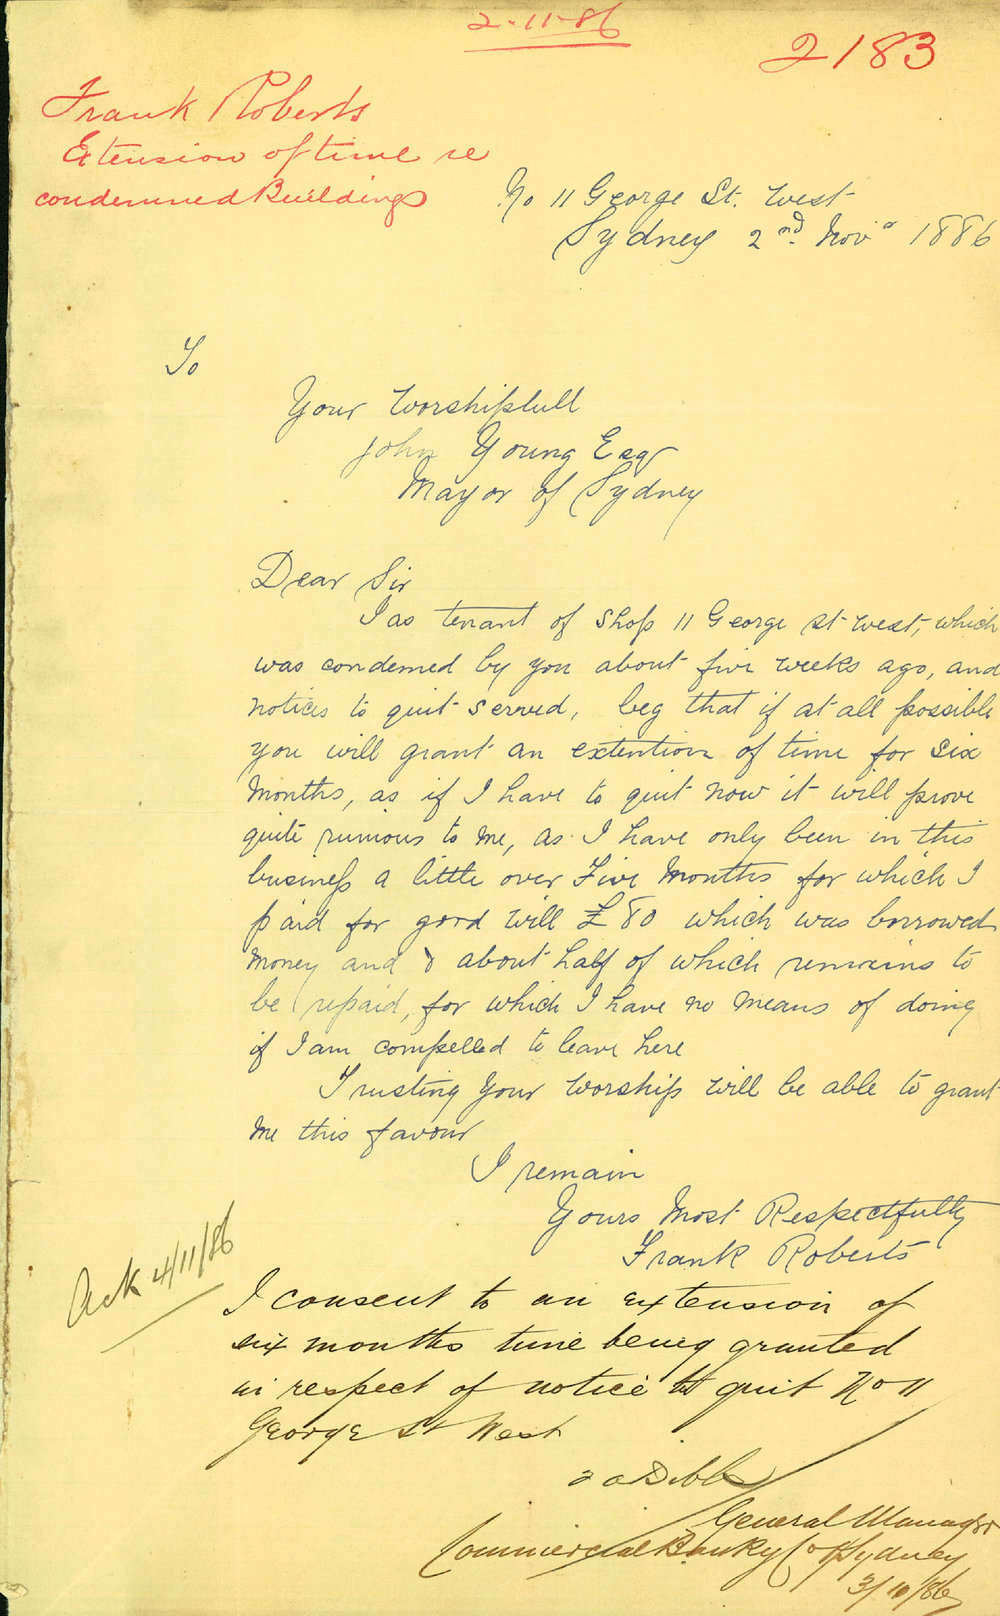 2-11-86
2183
Frank Roberts
Extension of time re
condemned Buildings
No 11 George St. West
Sydney 2nd Novr 1886
To
Your Worshipfull
John Young Esqr
Mayor of Sydney
Dear Sir
I as tenant of Shop 11 George st west, which
was condemed by you about five weeks ago, and
notices to quit served, beg that if at all possible
you will grant an extention of time for six
Months, as if I have to quit now it will prove
quite ruinous to me, as I have only been in this
business a little over Five Months for which I
paid for good will £80 which was borrowed
money and about half of which remains to
be repaid, for which I have no means of doing
if I am compelled to leave here
Trusting Your Worship will be able to grant
me this favour
I remain
Yours Most Respectfully
Frank Roberts
Ack 4/11/86
I consent to an extension of
six months time being granted
in respect of notice to quit No 11
George St West
Dibbs
General Manager
Commercial Banky Co of Sydney
3/10/86